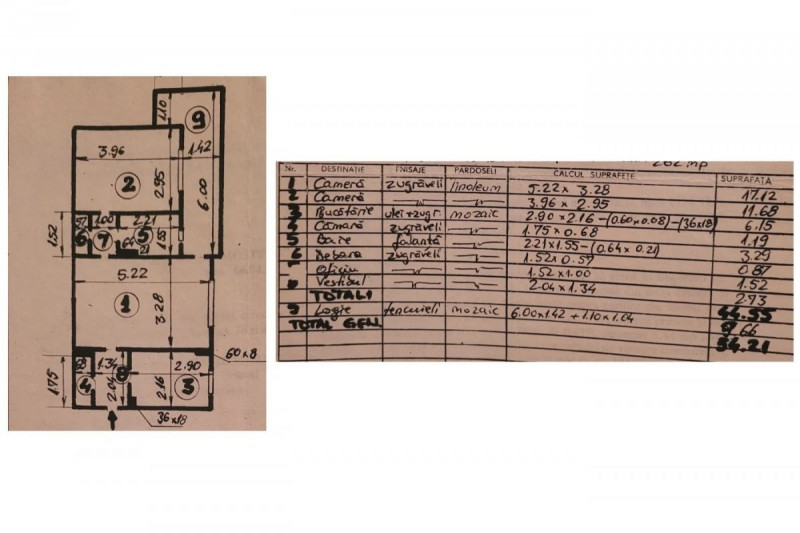 1.10
9
3.96
1.42
2
2.95
6.00
1.00
2.21
57
1.52
6
7
5
1.55
64
5.22
1
3.28
60x8
68
1.34
8
2.90
1.75
4
2.04
2.16
3
36x18
262 mp
Nr. DESTINAȚIE FINISAJE PARDOSELI CALCUL SUPRAFEȚE SUPRAFAȚA
1 Cameră zugrăveli linoleum 5.22 x 3.28 17.12
2 Cameră 3.96 x 2.95 11.68
3 Bucătărie ulei+zugr. mozaic 2.90 x 2.16 – (0.60x0.08) – (36x18) 6.15
4 Cămară zugrăveli 1.75 x 0.68 1.19
5 Baie faianță 2.21 x 1.55 – (0.64 x 0.21) 3.29
6 Debara zugrăveli 1.52 x 0.57 0.87
Oficiu 1.52 x 1.00 1.52
8 Vestibul 2.04 x 1.34 2.73
TOTAL 1 44.55
9 Logie tencuieli mozaic 6.00x1.42 + 1.10 x 1.04 9.66
TOTAL GEN 54.21